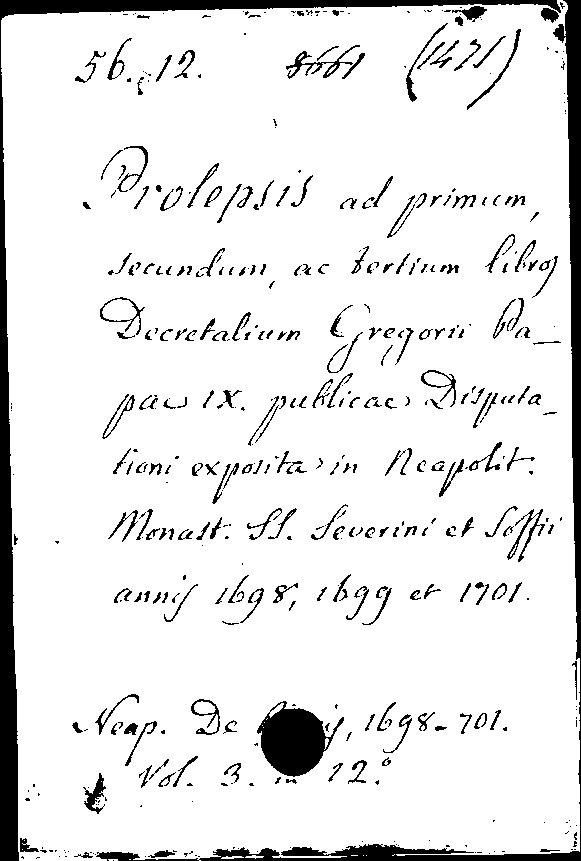 56. 12. 8661 (1471)
Prolepsis ad primum,
secundum, ac tertium libros
Decretalium Gregorii Pa-
pae IX. publicae Disputa-
tioni exposita in Neapolit.
Monast. SS. Severini et Soffii
annis 1698, 1699 et 1701.
Neap. De 1698-701.
Vol. 3. in 12.º